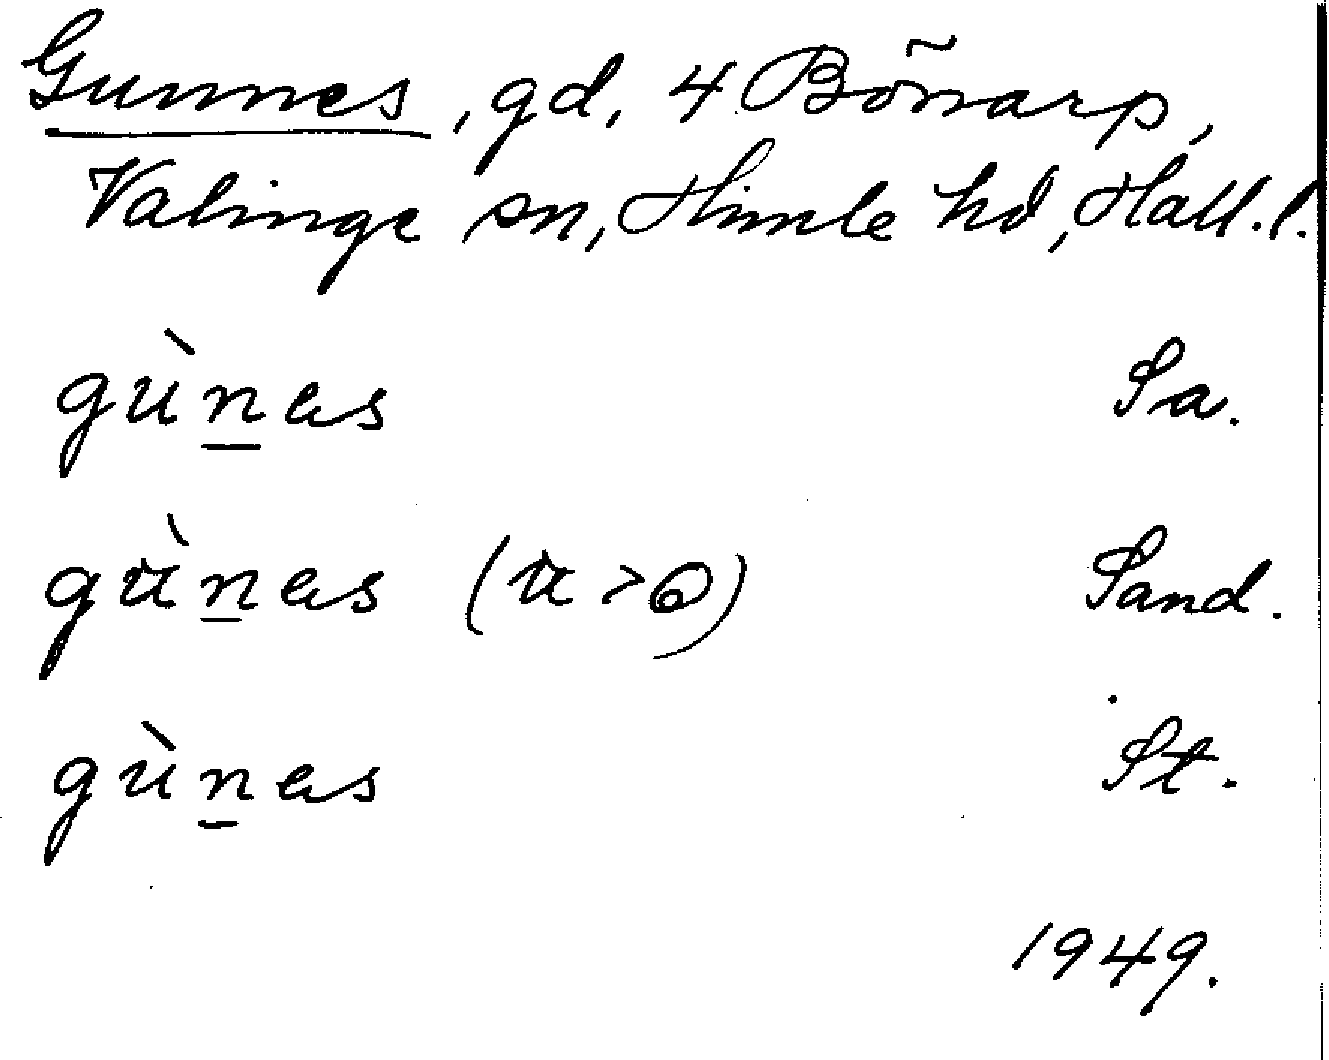 Gunnes, gd, 4 Bönarp,
Valinge sn, Himle hd, Hall. l.
gùnas Sa.
gùnas (u > o) Sand.
gùnas St.
1949.